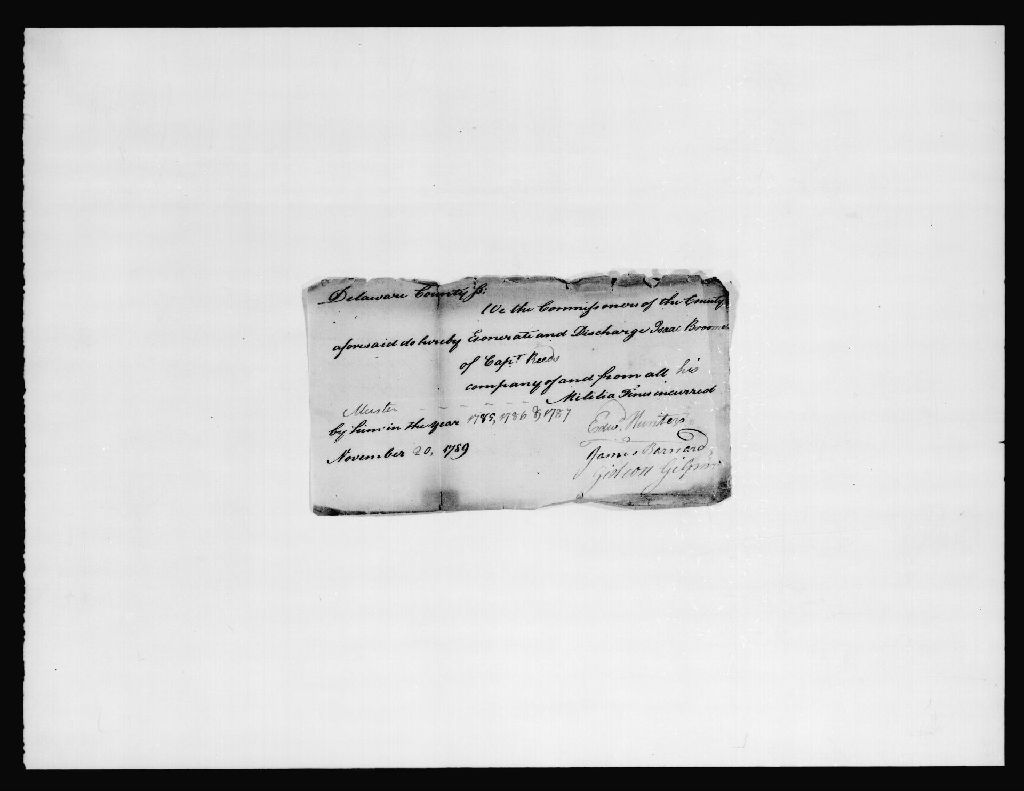 Delaware County ss:
We the Commissioners of the County
aforesaid do hereby Exonerate and Discharge Isaac Broomel
of Capt. Reeds
company of and from all his
Muster - - - - - - Militia Fines incurred
by him in the year 1785, 1786 & 1787
November 20, 1789
Edwd. Hunter
James Barnard
Gideon Gilpin